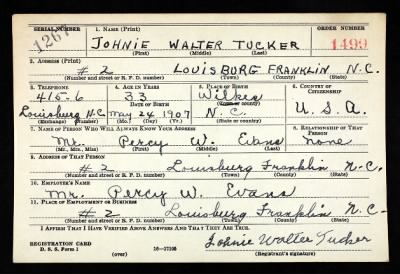 SERIAL NUMBER 1. NAME (Print) ORDER NUMBER
1267 JOHNIE WALTER TUCKER 1499
(First) (Middle) (Last)
2. ADDRESS (Print)
# 2 LOUISBURG FRANKLIN N.C.
(Number and street or R. F. D. number) (Town) (County) (State)
3. TELEPHONE 4. AGE IN YEARS 5. PLACE OF BIRTH 6. COUNTRY OF CITIZENSHIP
415-6 33 Wilkes
DATE OF BIRTH (Town or county)
Louisburg N.C. May 24 1907 N.C. U.S.A.
(Exchange) (Number) (Mo.) (Day) (Yr.) (State or country)
7. NAME OF PERSON WHO WILL ALWAYS KNOW YOUR ADDRESS 8. RELATIONSHIP OF THAT PERSON
Mr. Percy W. Evans None
(Mr., Mrs., Miss) (First) (Middle) (Last)
9. ADDRESS OF THAT PERSON
# 2 Louisburg Franklin N.C.
(Number and street or R. F. D. number) (Town) (County) (State)
10. EMPLOYER'S NAME
Mr. Percy W. Evans
11. PLACE OF EMPLOYMENT OR BUSINESS
# 2 Louisburg Franklin N.C.
(Number and street or R. F. D. number) (Town) (County) (State)
I AFFIRM THAT I HAVE VERIFIED ABOVE ANSWERS AND THAT THEY ARE TRUE.
Johnie Walter Tucker
REGISTRATION CARD
D. S. S. Form 1 (over) 16-17105 (Registrant's signature)